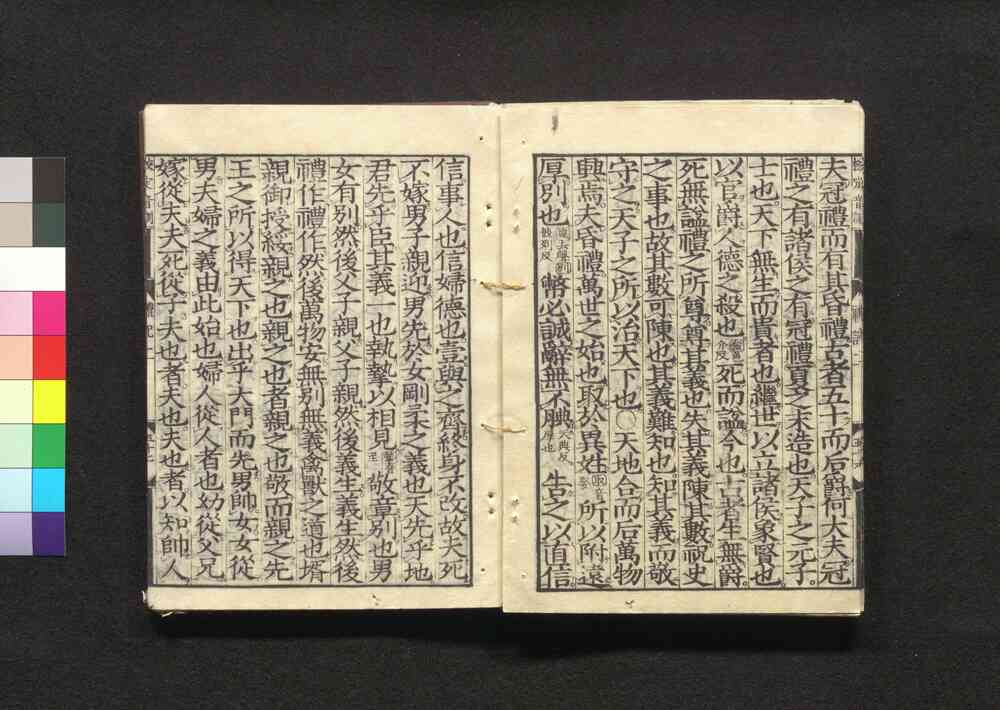 夫冠禮而有其昏禮古者五十而后爵何大夫冠
禮之有諸侯之有冠禮夏之末造也天子之元子
士也天下無生而貴者也繼世以立諸侯象賢也
以官爵人德之殺也死而謚今也古者生無爵
死無謚禮之所尊尊其義也失其義陳其數祝史
之事也故其數可陳也其義難知也知其義而敬
守之天子之所以治天下也○天地合而后萬物
興焉夫昏禮萬世之始也取於異姓所以附遠
厚別也幣必誠辭無不腆告之以直信
信事人也信婦德也壹與之齊終身不改故夫死
不嫁男子親迎男先於女剛柔之義也天先乎地
君先乎臣其義一也執摯以相見敬章別也男
女有別然後父子親父子親然後義生義生然後
禮作禮作然後萬物安無別無義禽獸之道也壻
親御授綏親之也親之也者親之也敬而親之先
王之所以得天下也出乎大門而先男帥女女從
男夫婦之義由此始也婦人從人者也幼從父兄
嫁從夫夫死從子夫也者夫也夫也者以知帥人